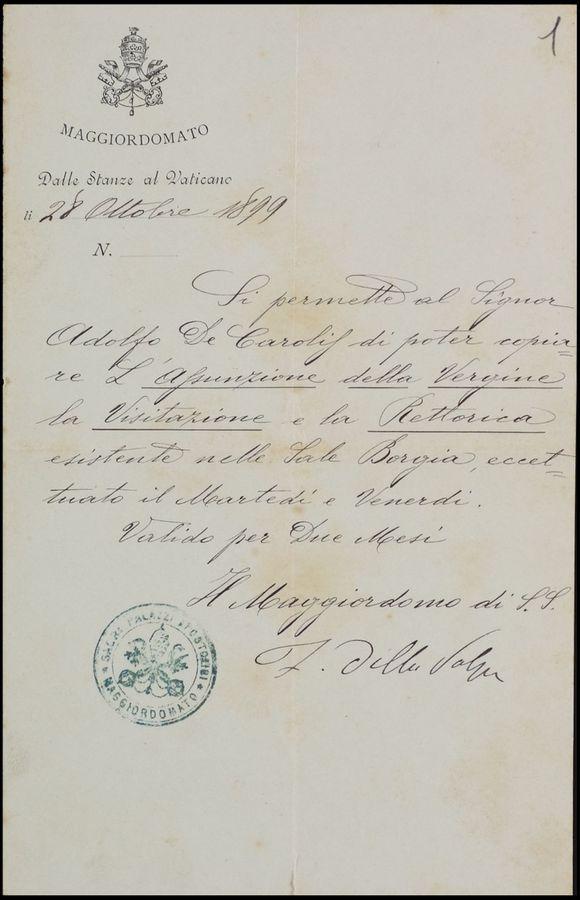 1
MAGGIORDOMATO
Dalle Stanze al Vaticano
li 28 Ottobre 1899
N.
Si permette al Signor
Adolfo De Carolis di poter copia-
re L'Assunzione della Vergine
la Visitazione e la Rettorica
esistente nelle Sale Borgia, eccet-
tuato il Martedi e Venerdi.
Valido per Due Mesi
Il Maggiordomo di S.S.
F. Della Volpe
SACRI PALAZZI APOSTOLICI
MAGGIORDOMATO